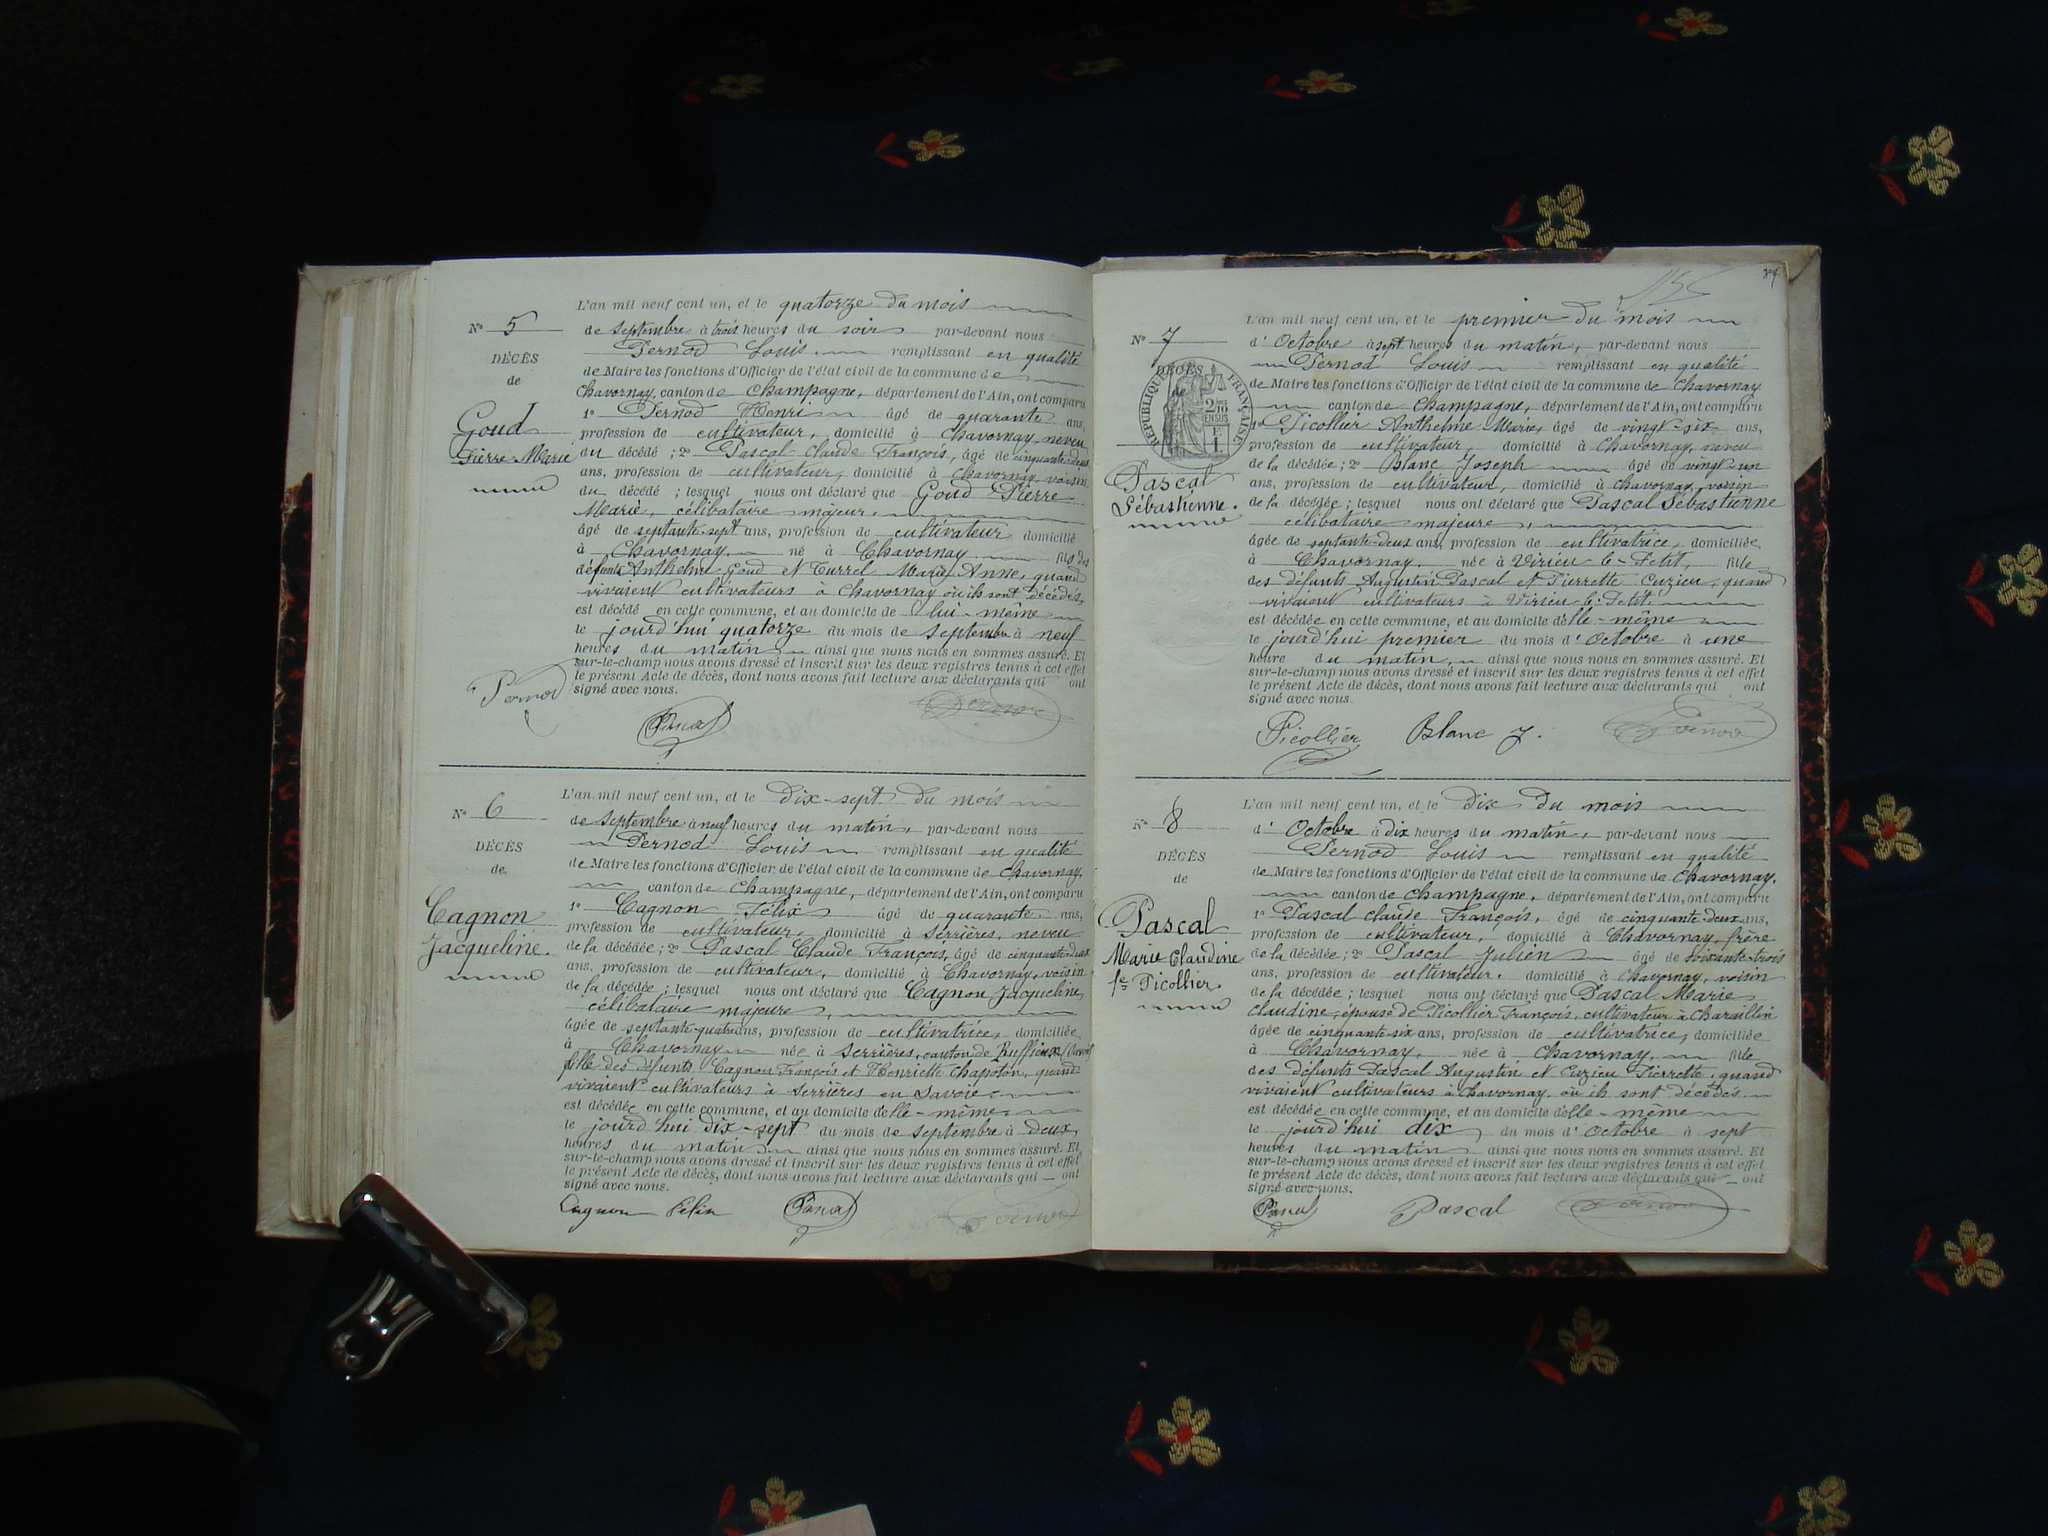 L'an mil neuf cent un, et le quatorze du mois
N° 5
de septembre à trois heures du soir par-devant nous
Pernod Louis remplissant en qualité
DÉCÈS
de Maire les fonctions d'Officier de l'état civil de la commune de
de
Chavornay, canton de Champagne, département de l'Ain, ont comparu
1° Pernod Henri âgé de quarante ans,
Goud
profession de cultivateur, domicilié à Chavornay, neveu
Pierre Marie
du décédé ; 2° Pascal Claude François, âgé de cinquante-deux
ans, profession de cultivateur, domicilié à Chavornay, voisin
du décédé ; lesquel nous ont déclaré que Goud Pierre
Marie, célibataire majeur,
âgé de septante-sept ans, profession de cultivateur domicilié
à Chavornay né à Chavornay fils des
défunts Anthelme Goud et Turrel Marie Anne, quand
vivaient cultivateurs à Chavornay où ils sont décédés,
est décédé en cette commune, et au domicile de lui-même
le jourd'hui quatorze du mois de septembre à neuf
heures du matin ainsi que nous nous en sommes assuré. Et
sur-le-champ nous avons dressé et inscrit sur les deux registres tenus à cet effet
le présent Acte de décès, dont nous avons fait lecture aux déclarants qui ont
signé avec nous.
Pernod
Pascal
Pernod
L'an mil neuf cent un, et le dix-sept du mois
N° 6
de septembre à neuf heures du matin, par-devant nous
Pernod Louis remplissant en qualité
DÉCÈS
de Maire les fonctions d'Officier de l'état civil de la commune de Chavornay,
de
canton de Champagne, département de l'Ain, ont comparu
1° Cagnon Félix âgé de quarante ans,
Cagnon
profession de cultivateur, domicilié à Serrières, neveu
Jacqueline.
de la décédée ; 2° Pascal Claude François, âgé de cinquante-deux
ans, profession de cultivateur, domicilié à Chavornay, voisin
de la décédée ; lesquel nous ont déclaré que Cagnon Jacqueline,
célibataire majeure,
âgée de septante-quatre ans, profession de cultivatrice, domiciliée
à Chavornay née à Serrières, canton de Ruffieux
fille des défunts Cagnon François et Henriette Chapoton, quand
vivaient cultivateurs à Serrières en Savoie
est décédée en cette commune, et au domicile d'elle-même
le jourd'hui dix-sept du mois de septembre à deux
heures du matin ainsi que nous nous en sommes assuré. Et
sur-le-champ nous avons dressé et inscrit sur les deux registres tenus à cet effet
le présent Acte de décès, dont nous avons fait lecture aux déclarants qui ont
signé avec nous.
Cagnon Félix
Pascal
Pernod
L'an mil neuf cent un, et le premier du mois
N° 7
d'Octobre à sept heures du matin, par-devant nous
Pernod Louis remplissant en qualité
DÉCÈS
RÉPUBLIQUE FRANÇAISE
de Maire les fonctions d'Officier de l'état civil de la commune de Chavornay
canton de Champagne, département de l'Ain, ont comparu
1° Picollier Anthelme Marie, âgé de vingt-six ans,
profession de cultivateur, domicilié à Chavornay, neveu
de la décédée ; 2° Blanc Joseph âgé de vingt-un
Pascal
ans, profession de cultivateur, domicilié à Chavornay, voisin
Sébastienne.
de la décédée ; lesquel nous ont déclaré que Pascal Sébastienne
célibataire majeure,
âgée de septante-deux ans, profession de cultivatrice, domiciliée
à Chavornay. née à Virieu-le-Petit, fille
des défunts Augustin Pascal et Pierrette Curieu, quand
vivaient cultivateurs à Virieu-le-Petit.
est décédée en cette commune, et au domicile d'elle-même
le jourd'hui premier du mois d'Octobre à une
heure du matin, ainsi que nous nous en sommes assuré. Et
sur-le-champ nous avons dressé et inscrit sur les deux registres tenus à cet effet
le présent Acte de décès, dont nous avons fait lecture aux déclarants qui ont
signé avec nous.
Picollier
Blanc J.
Pernod
L'an mil neuf cent un, et le dix du mois
N° 8
d'Octobre à dix heures du matin, par-devant nous
Pernod Louis remplissant en qualité
DÉCÈS
de Maire les fonctions d'Officier de l'état civil de la commune de Chavornay.
de
canton de Champagne, département de l'Ain, ont comparu
1° Pascal Claude François, âgé de cinquante-deux ans,
Pascal
profession de cultivateur, domicilié à Chavornay, frère
Marie Claudine
de la décédée ; 2° Pascal Julien âgé de soixante-trois
fe Picollier
ans, profession de cultivateur. domicilié à Chavornay, voisin
de la décédée ; lesquel nous ont déclaré que Pascal Marie
Claudine, épouse de Picollier François, cultivateur à Charaillin
âgée de cinquante-six ans, profession de cultivatrice, domiciliée
à Chavornay, née à Chavornay, fille
des défunts Pascal Augustin et Curieu Pierrette, quand
vivaient cultivateurs à Chavornay où ils sont décédés.
est décédée en cette commune, et au domicile d'elle-même
le jourd'hui dix du mois d'Octobre à sept
heures du matin ainsi que nous nous en sommes assuré. Et
sur-le-champ nous avons dressé et inscrit sur les deux registres tenus à cet effet
le présent Acte de décès, dont nous avons fait lecture aux déclarants qui ont
signé avec nous.
Pascal
Pascal
Pernod